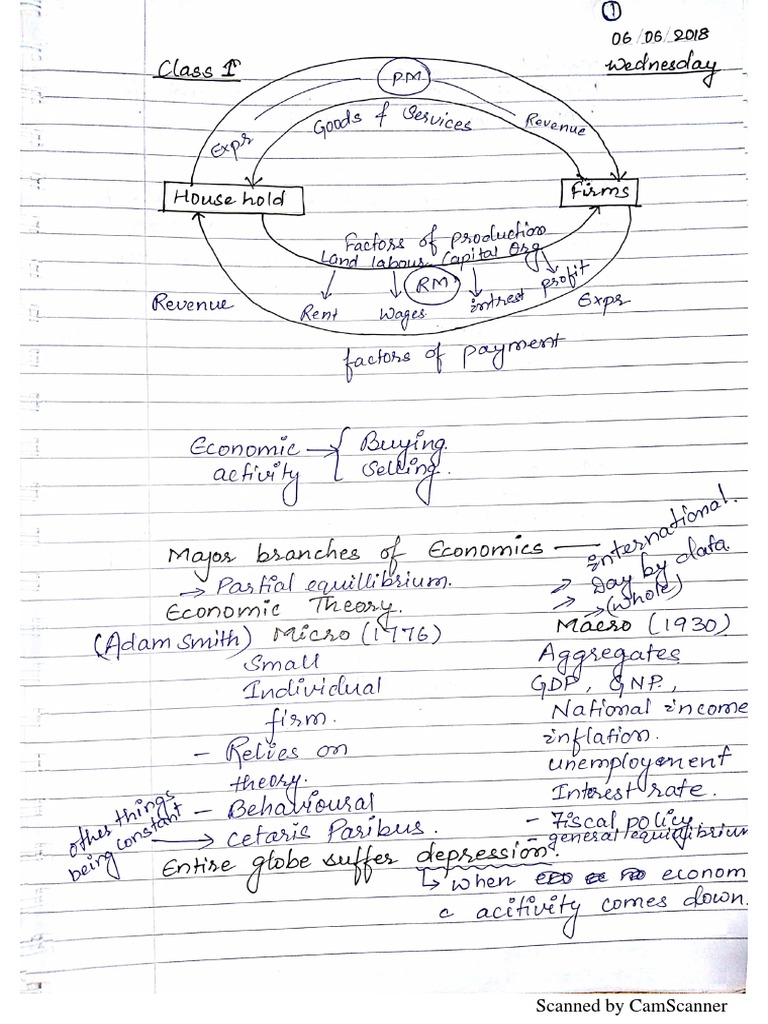 1
06/06/2018
Wednesday
Class 1
PM
Goods & Services
Expr
Revenue
House hold
Firms
Factors of production
Land labour Capital Org
RM
Rent
Wages
intrest
profit
Revenue
Expr
factors of payment
Economic activity → { Buying
Selling.
Major branches of Economics — international.
→ Partial equillibrium.
→ Day by data
Economic Theory.
→ (whole)
(Adam Smith) Micro (1776)
Macro (1930)
Small
Aggregates
Individual
GDP, GNP,
firm.
National income
inflation.
- Relies on
theory.
unemployment
Interest rate.
- Behavioural
other things
being constant
→ Cetaris Paribus.
- Fiscal policy
- general equilibrium
Entire globe suffer depression.
↳ When econom
c acitivity comes down.
Scanned by CamScanner